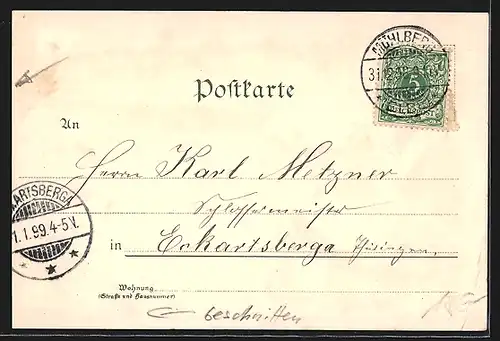 MÜHLBERG
31.12.98
5
Postkarte
An
Herrn Karl Metzner
Schlossermeister
in Eckartsberga Thüringen.
ARTSBERGA
1.1.99.4-5V.
Wohnung
(Straße und Hausnummer)
beschnitten